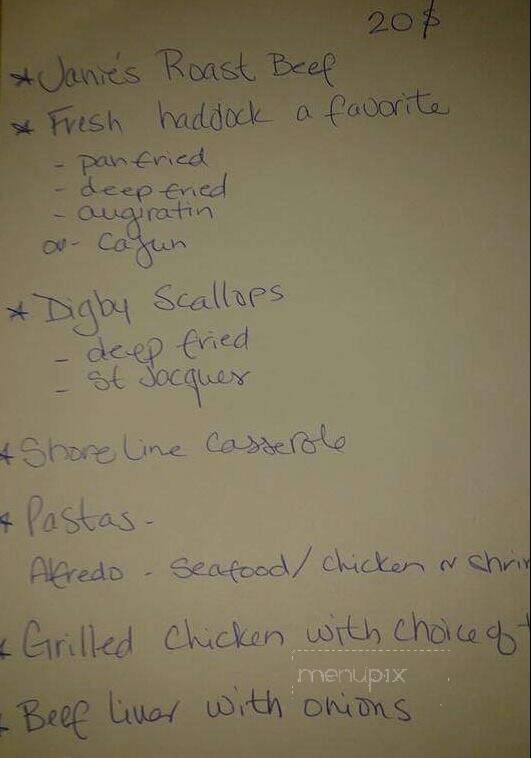 20$
* Janie's Roast Beef
* Fresh haddock a favorite
- panfried
- deep fried
- augratin
or - Cajun
* Digby Scallops
- deep fried
- St Jacques
* Shoreline Casserole
* Pastas -
Alfredo - Seafood/chicken n shrim
* Grilled Chicken with choice of
menupix
* Beef liver with onions